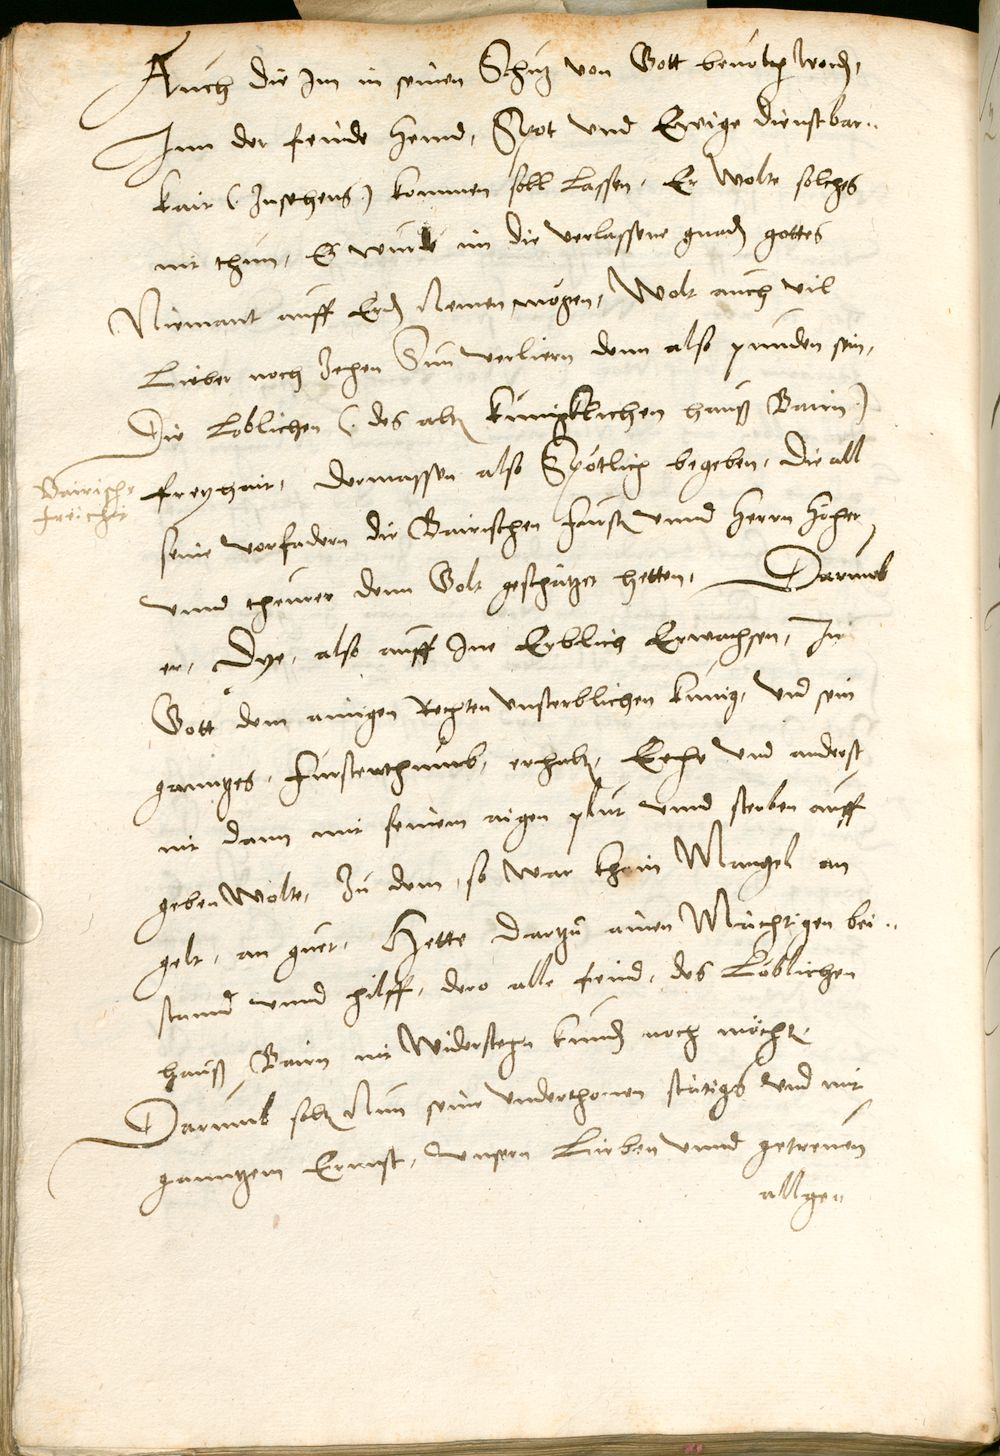 Auch die Im in seinen Schuz von Gott bevolhen worden,
Inn der feinde hennd, Spot und Ewige dienstbar¨
kait (. Zusehens .) kommen soll Lassen, Er wolte solches
nit thun, Es wurde im die verlassene gnaden gottes
Niemant auff Erden Nemen mögen, Wolt auch vil
Lieber noch Zehen Sun verliern denn also punden sein,
Die Loblichen (. des alten kunigklichen hauß Bairn .)
freyhait, dermassen also Spötlich begeben, die all
Bairische
freiheit
seine vorfadern die Bairischen Fürsten unnd Herrn höher
unnd theurer denn Golt geschätzet hetten, Darumb
er, Dye, also auff Ine Erblich Erwachsen, In
Gott dem ainigen Rechten unsterblichen kunig, und sein
ganntzes, Furstenthumb, erhalten, Eehr und anderst
nit dann mit seinem aigen plut unnd sterben auff
geben wolte, Zu dem, so war khain Mangel an
gelt, an guet, Hette dartzu ainen Mächtigen bei¨
stannd unnd hilff, dero alle feind, des Löblichen
hauß Bairn nit widerstehn kunden noch möchten
Darumb solten Nun seine underthonen stätigs und mit
ganntzem Ernnst, unsern Lieben unnd getreuen
allgen